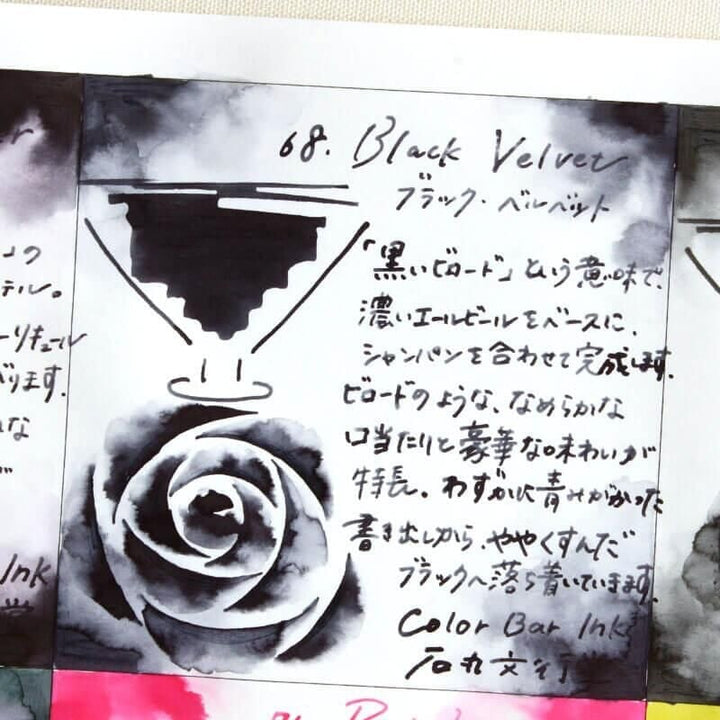 68. Black Velvet
ブラック・ベルベット
「黒いビロード」という意味で、
濃いエールビールをベースに、
シャンパンを合わせて完成します。
ビロードのような、なめらかな
口当たりと豪華な味わいが
特長。わずかに青みがかった
書き出しから、ややくすんだ
ブラックへ落ち着いていきます。
Color Bar Ink
石丸文行堂
の
テル。
ーリキュール
ります。
な
Ink
堂